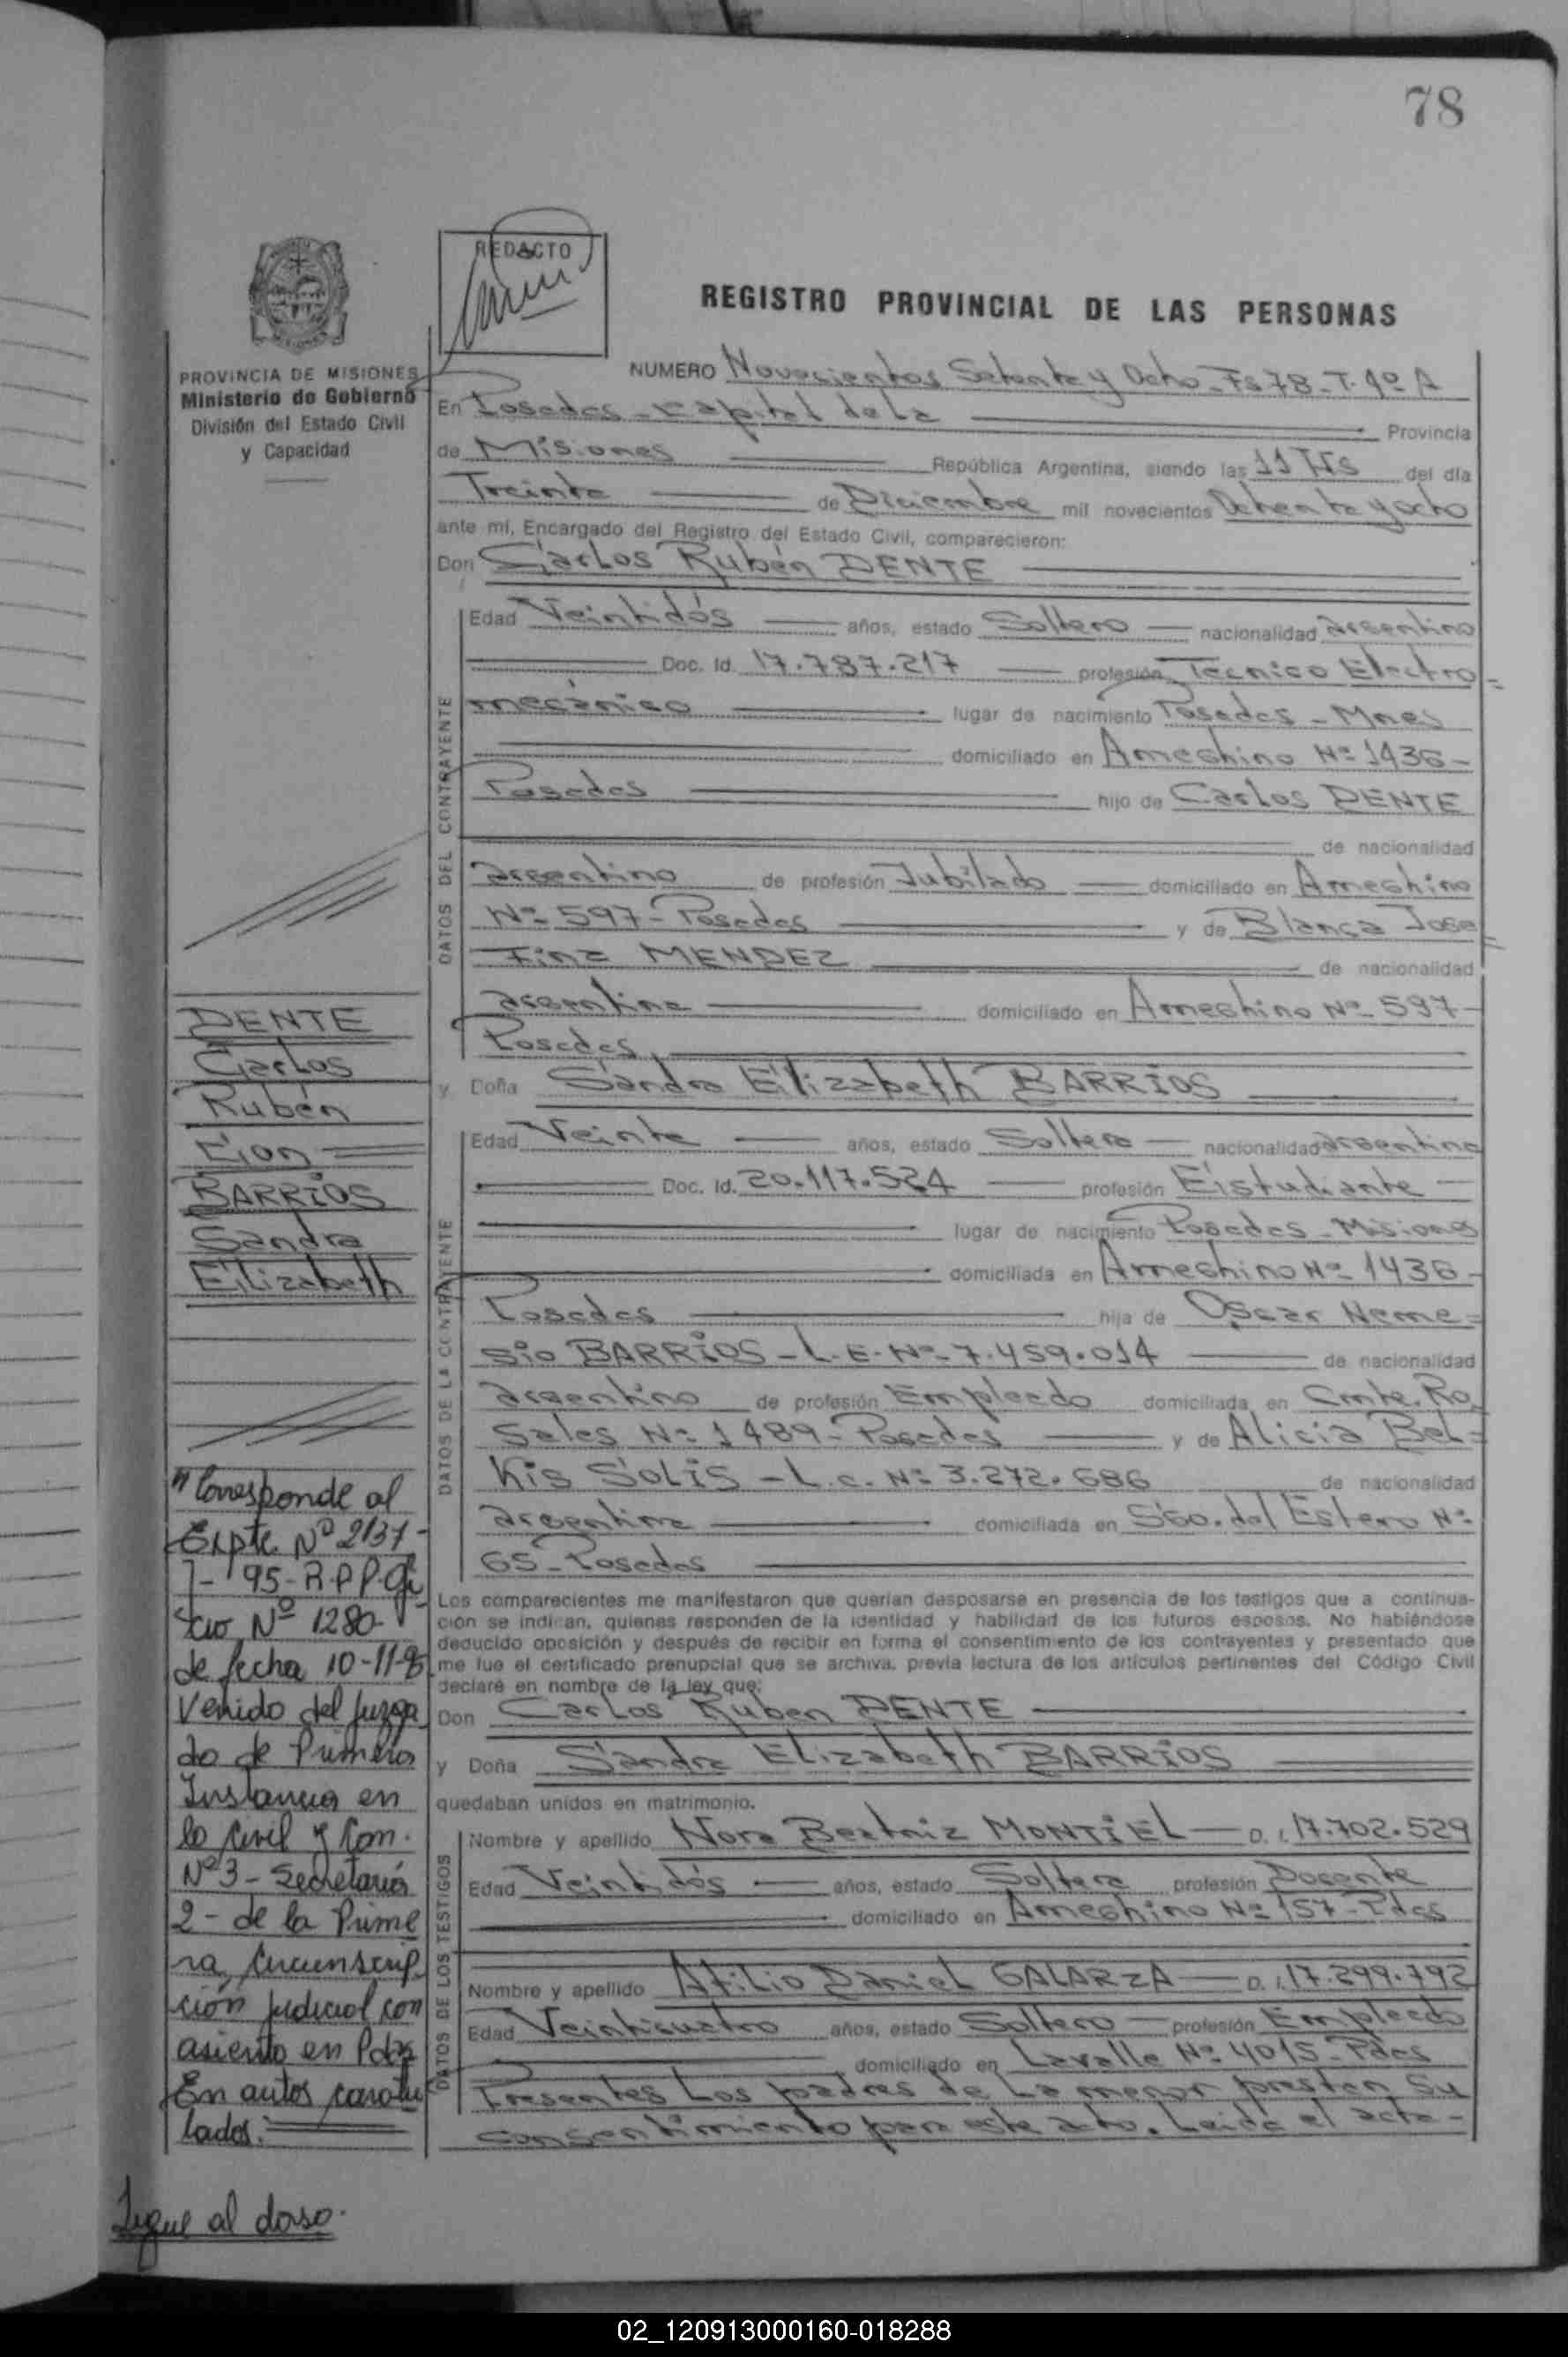 78
REDACTO
REGISTRO PROVINCIAL DE LAS PERSONAS
PROVINCIA DE MISIONES
Ministerio de Gobierno
División del Estado Civil
y Capacidad
NUMERO Novecientos Setenta y Ocho - Fs 78 - T. 4º A
En Posadas - Capital de la Provincia
de Misiones República Argentina, siendo las 11 Hs del día
Treinta de Diciembre mil novecientos Ochenta y ocho
ante mí, Encargado del Registro del Estado Civil, comparecieron:
Don Carlos Rubén DENTE
DATOS DEL CONTRAYENTE
Edad Veintidós años, estado Soltero nacionalidad argentino
Doc. Id. 17.787.217 profesión Técnico Electro=
mecánico lugar de nacimiento Posadas - Mnes
domiciliado en Ameghino Nº 1436 -
Posadas hijo de Carlos DENTE
de nacionalidad
argentino de profesión Jubilado domiciliado en Ameghino
Nº 597 - Posadas y de Blanca Jose=
Fina MENDEZ de nacionalidad
argentina domiciliado en Ameghino Nº 597 -
Posadas
y Doña Sandra Elizabeth BARRIOS
DATOS DE LA CONTRAYENTE
Edad Veinte años, estado Soltera nacionalidad argentina
Doc. Id. 20.117.524 profesión Estudiante
lugar de nacimiento Posadas - Misiones
domiciliada en Ameghino Nº 1436 -
Posadas hija de Oscar Neme=
sio BARRIOS - L.E. Nº 7.459.014 de nacionalidad
argentino de profesión Empleado domiciliada en Cmte. Ro=
sales Nº 1489 - Posadas y de Alicia Bel=
Kis SOLIS - L.C. Nº 3.272.686 de nacionalidad
argentina domiciliada en Sgo. del Estero Nº
65 - Posadas
Los comparecientes me manifestaron que querían desposarse en presencia de los testigos que a continua-
ción se indican, quienes responden de la identidad y habilidad de los futuros esposos. No habiéndose
deducido oposición y después de recibir en forma el consentimiento de los contrayentes y presentado que
me fue el certificado prenupcial que se archiva, previa lectura de los artículos pertinentes del Código Civil
declaré en nombre de la ley que:
Don Carlos Ruben DENTE
y Doña Sandra Elizabeth BARRIOS
quedaban unidos en matrimonio.
DATOS DE LOS TESTIGOS
Nombre y apellido Nora Beatriz MONTIEL D. I. 17.702.529
Edad Veintidós años, estado Soltera profesión Docente
domiciliado en Ameghino Nº 157 - Pdas
Nombre y apellido Atilio Daniel GALARZA D. I. 17.299.792
Edad Veinticuatro años, estado Soltero profesión Empleado
domiciliado en Lavalle Nº 4015 - Pdas
Presentes Los padres de La menor prestan su
consentimiento para este acto. Leida el acta -
DENTE
Carlos
Rubén
Con
BARRIOS
Sandra
Elizabeth
"Corresponde al
Expte. Nº 2137-
J- 95 - R.P.P. Ofi
cio Nº 1280-
de fecha 10-11-95
Venido del Juzga
do de Primera
Instancia en
lo Civil y Com.
Nº 3 - Secretaría
2 - de la Prime
ra, Circunscrip
ción judicial con
asiento en Pdas
En autos caratu
lados:
Sigue al dorso.
02_120913000160-018288